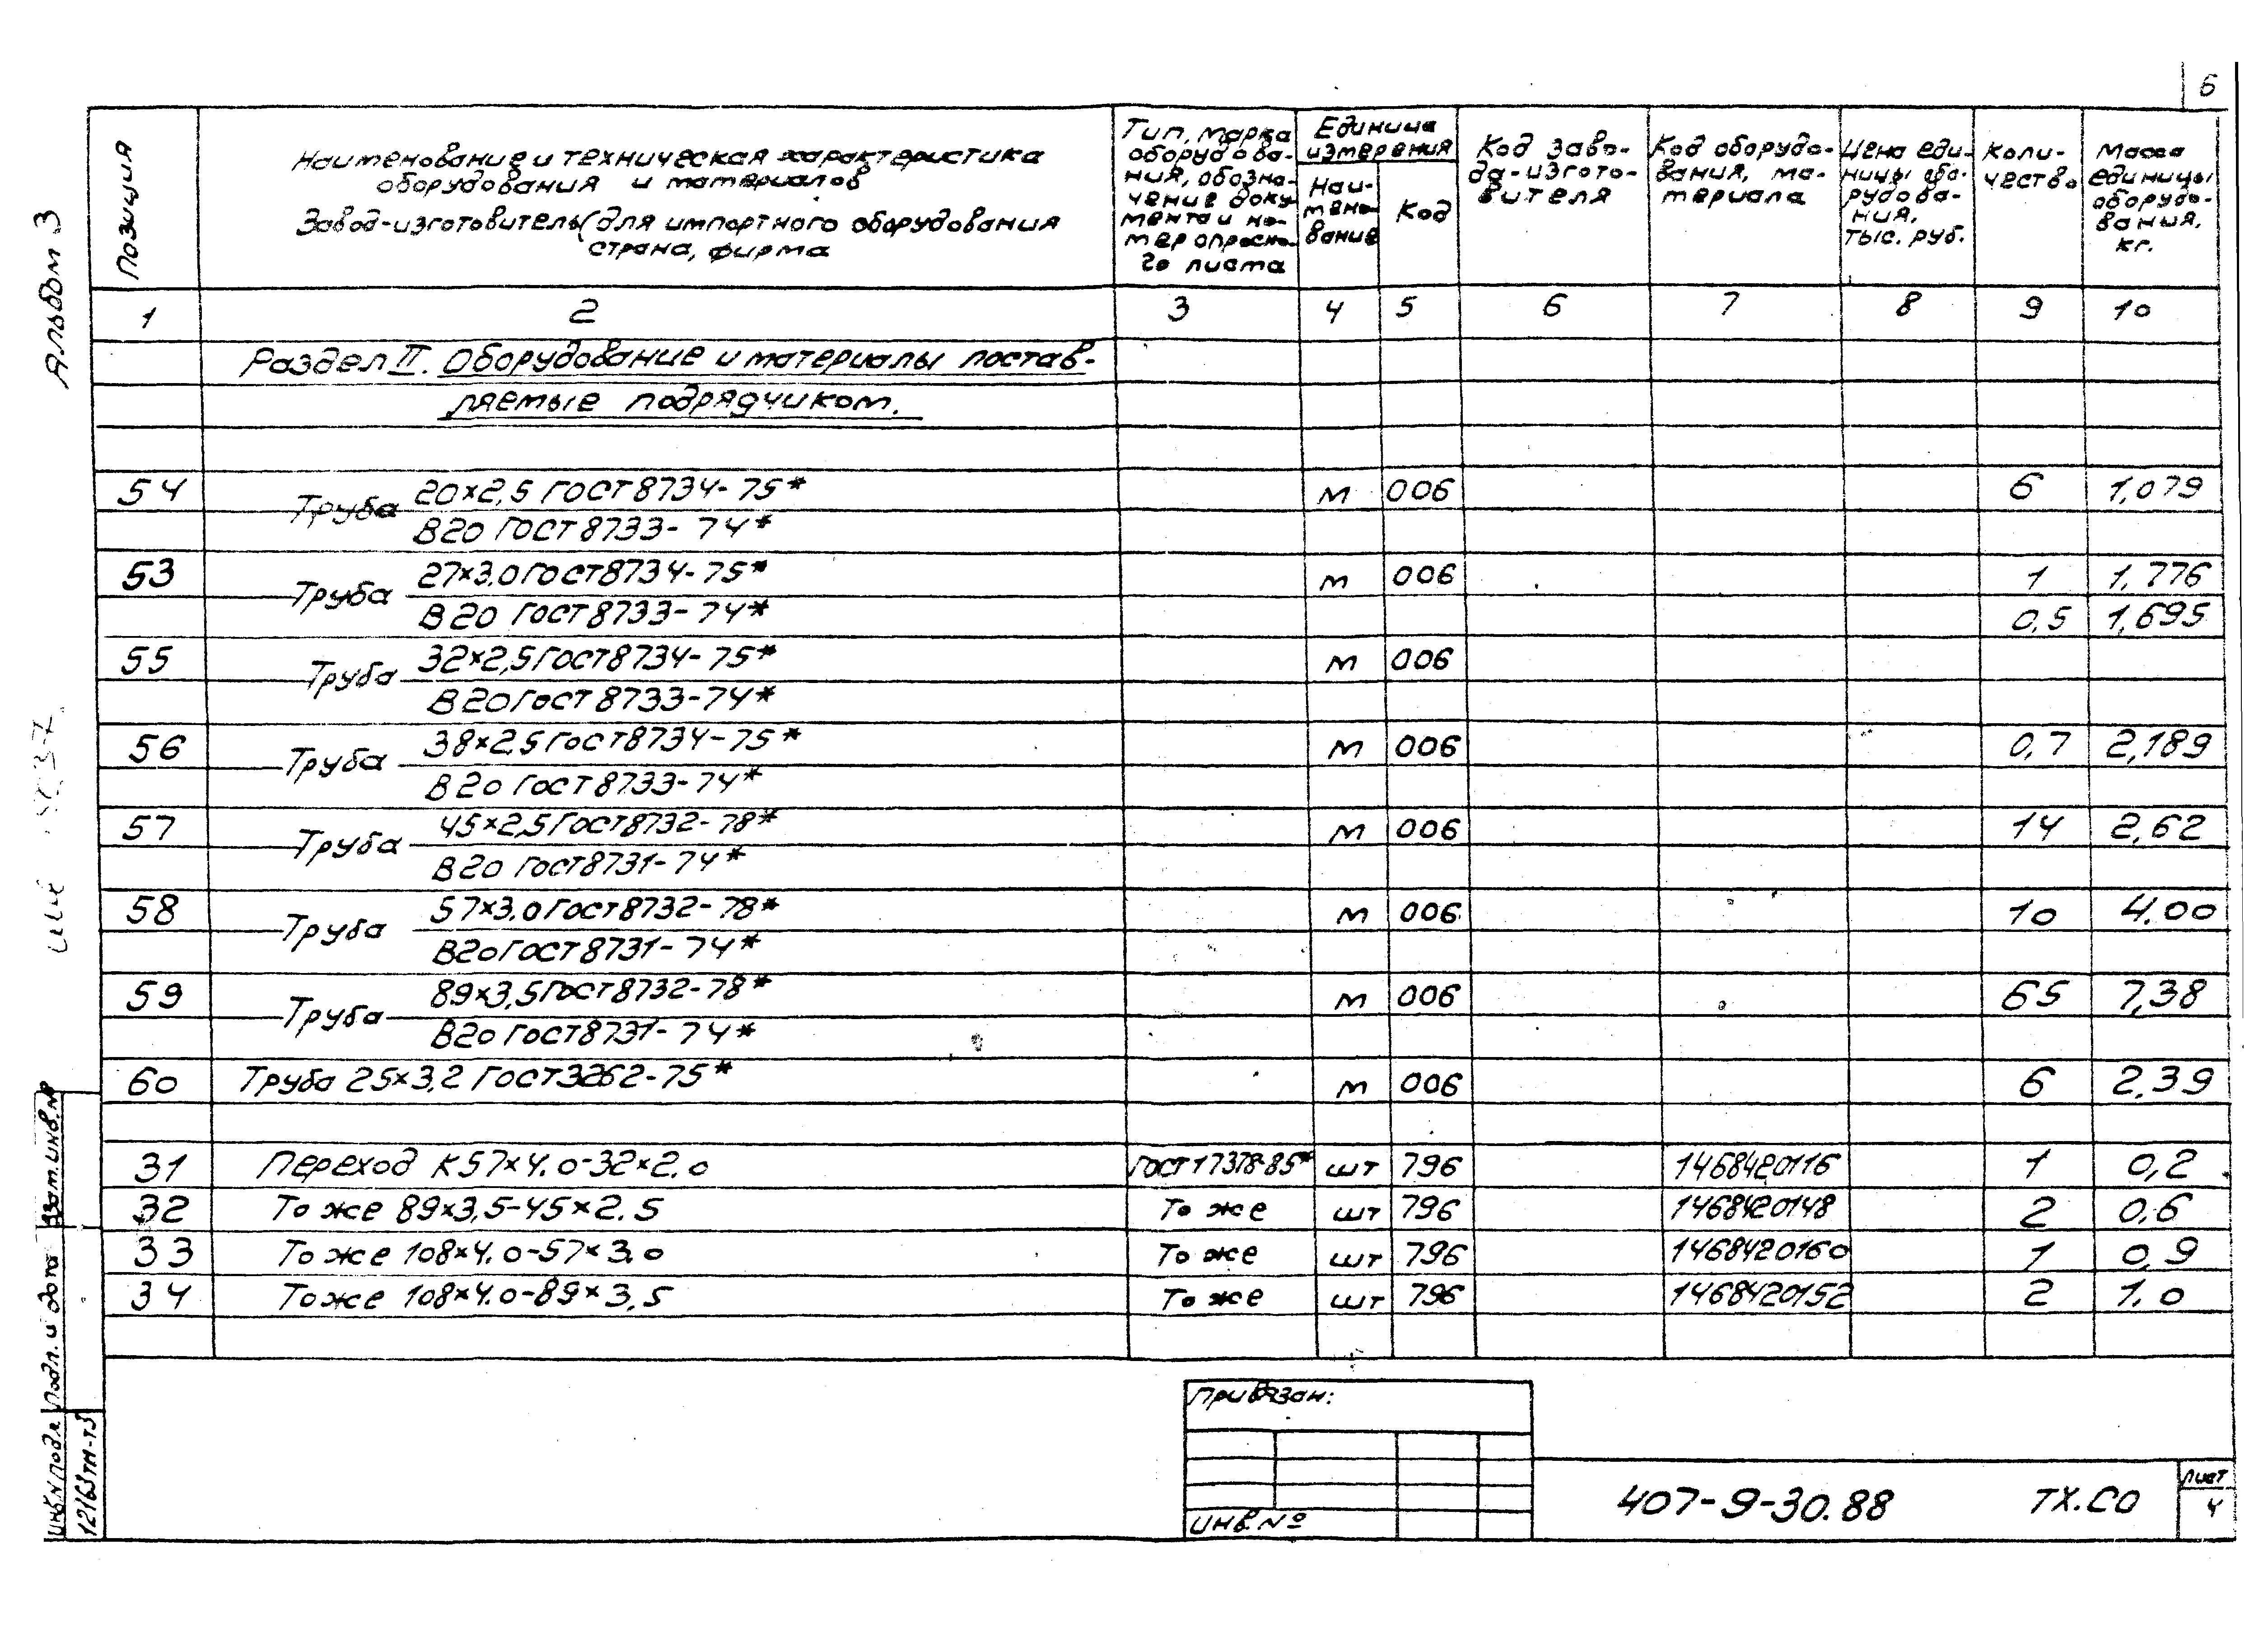 6
Альбом 3
Позиция
Наименование и техническая характеристика
оборудования и материалов
Завод-изготовитель (для импортного оборудования
страна, фирма
Тип, марка
оборудова-
ния, обозна-
чение доку
мента и но-
мер опросно-
го листа
Единица
измерения
Наи-
мено-
вание
Код
Код заво-
да-изгото-
вителя
Код оборудо-
вания, ма-
териала
Цена еди-
ницы обо-
рудова-
ния,
тыс. руб.
Коли-
чество
Масса
единицы
оборудо-
вания,
кг.
1 2 3 4 5 6 7 8 9 10
Раздел II. Оборудование и материалы постав-
ляемые подрядчиком.
54 Труба 20×2,5 ГОСТ 8734-75* м 006 6 1,079
В20 ГОСТ 8733-74*
53 Труба 27×3.0 ГОСТ 8734-75* м 006 1 1,776
В20 ГОСТ 8733-74* 0,5 1,695
55 Труба 32×2,5 ГОСТ 8734-75* м 006
В20 ГОСТ 8733-74*
56 Труба 38×2,5 ГОСТ 8734-75* м 006 0,7 2,189
В20 ГОСТ 8733-74*
57 Труба 45×2,5 ГОСТ 8732-78* м 006 14 2,62
В20 ГОСТ 8731-74*
58 Труба 57×3,0 ГОСТ 8732-78* м 006 10 4.00
В20 ГОСТ 8731-74*
59 Труба 89×3,5 ГОСТ 8732-78* м 006 65 7,38
В20 ГОСТ 8731-74*
60 Труба 25×3,2 ГОСТ 3262-75* м 006 6 2.39
31 Переход К 57×4.0-32×2.0 ГОСТ 17378-85* шт 796 1468420116 1 0,2
32 То же 89×3,5-45×2.5 То же шт 796 1468420148 2 0,6
33 То же 108×4.0-57×3.0 То же шт 796 1468420160 1 0,9
34 То же 108×4.0-89×3,5 То же шт 796 1468420152 2 1.0
Взам. инв. №
Подп. и дата
Инв. № подл.
12163тм-т3
Привязан:
Инв. №
407-9-30.88
ТХ.СО
Лист
4